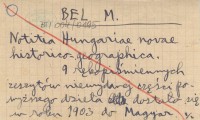 BEL M.
BN 004/0195
Notitia Hungariae novae
historico-geographica.
9 rękopiśmiennych
zeszytów niewydanej części po-
wyższego dzieła dostało się
w roku 1903 do Magyar